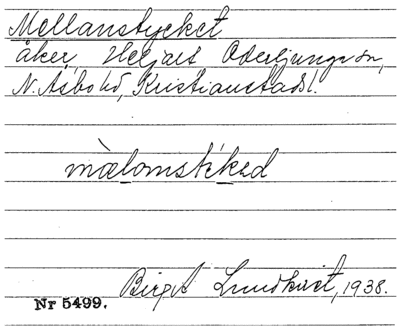 Mellanstycket
åker, Heljalt Oderljunga sn,
N. Åsbo hd, Kristianstads l.
mæ̀lomstẹ́ked
Birgit Lundkvist, 1938.
Nr 5499.